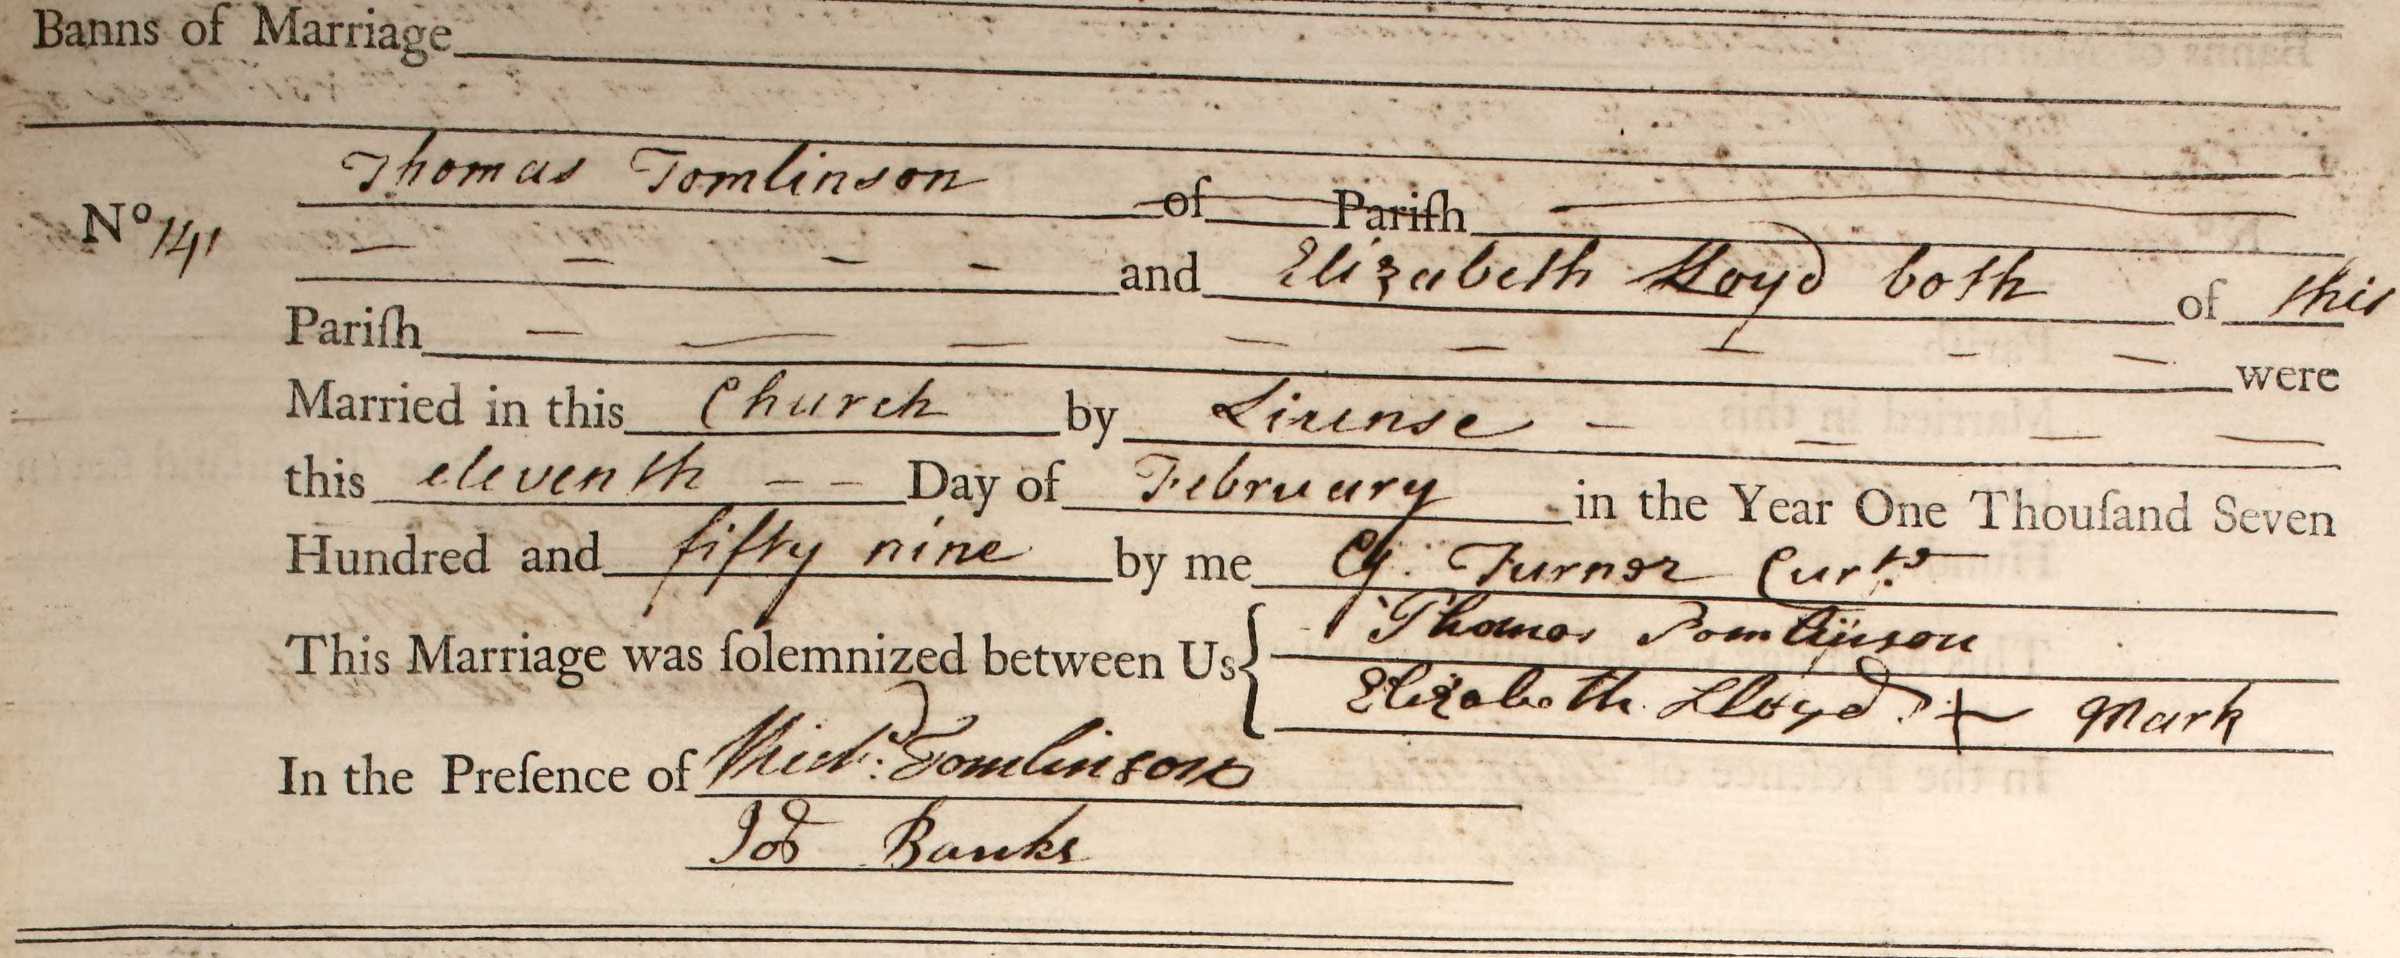 Banns of Marriage
Thomas Tomlinson of Pariſh
No 141
and Elizabeth Lloyd both of this
Pariſh were
Married in this Church by License
this eleventh Day of February in the Year One Thouſand Seven
Hundred and fifty nine by me G. Turner Curte
This Marriage was ſolemnized between Us { Thomas Tomlinson
Elizabeth Lloyd + Mark
In the Preſence of Richd: Tomlinson
Job Banks